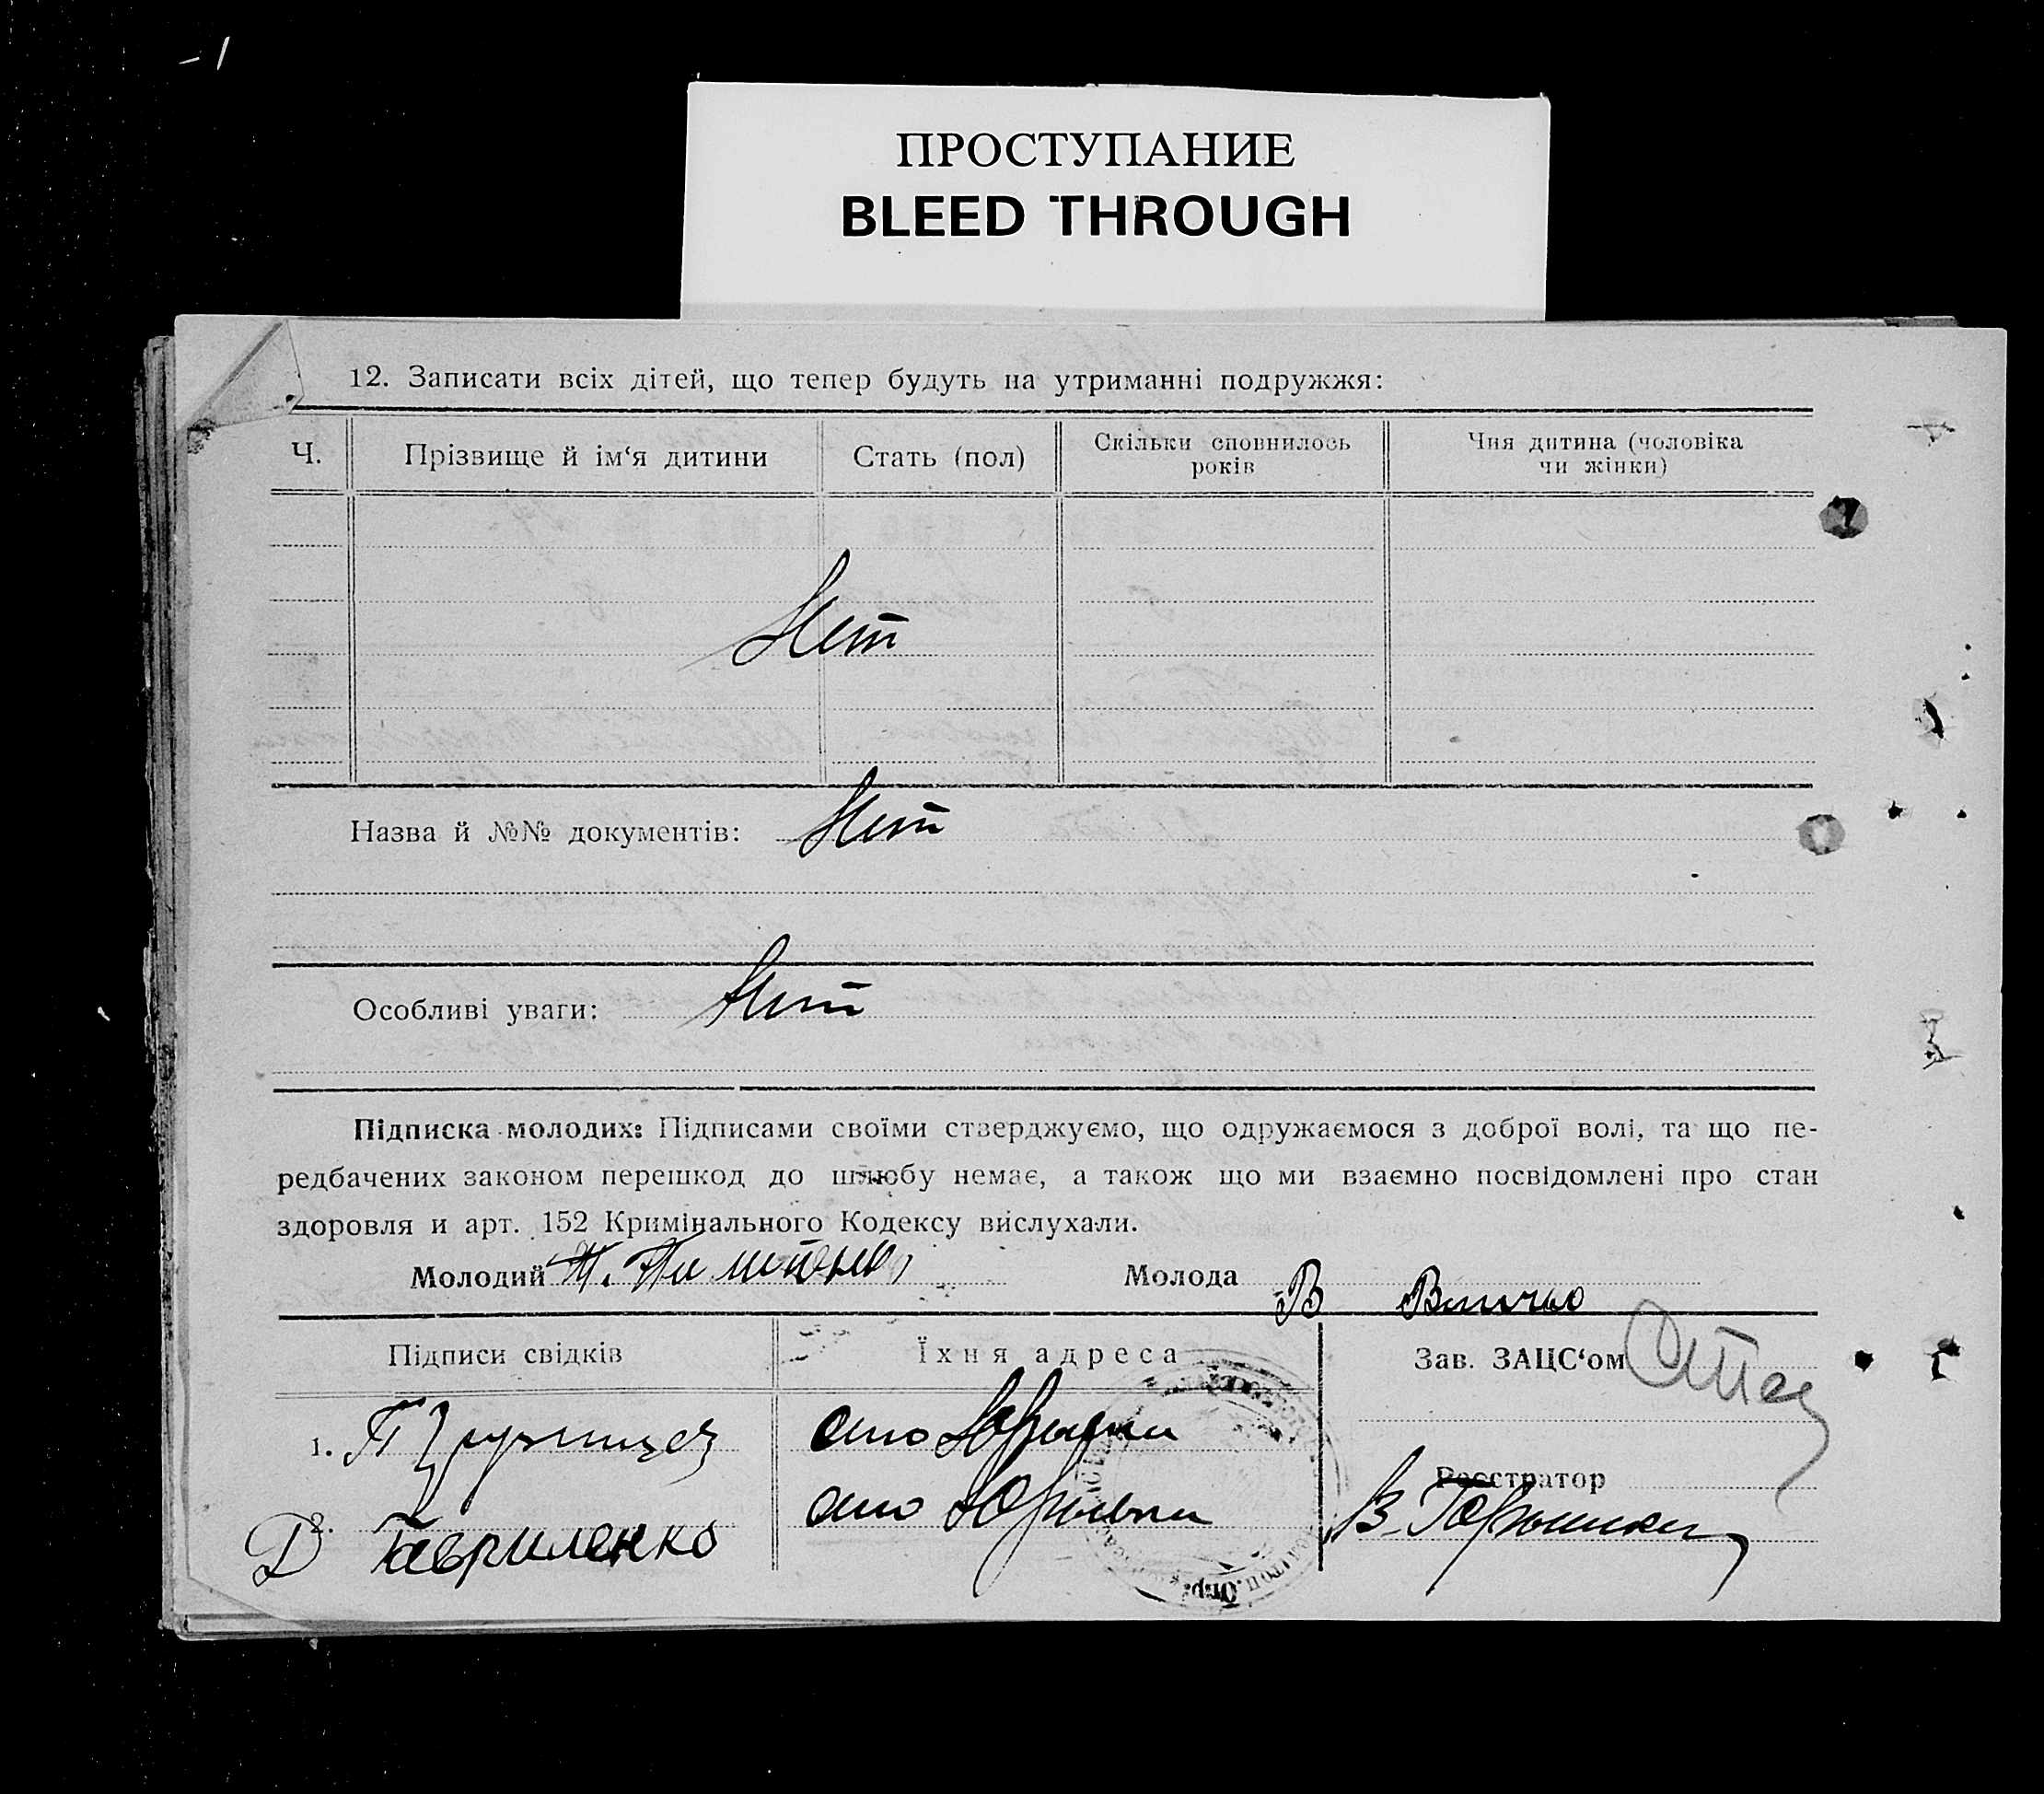 ПРОСТУПАНИЕ
BLEED THROUGH
12. Записати всіх дітей, що тепер будуть на утриманні подружжя:
Ч. Прізвище й ім‘я дитини Стать (пол) Скільки сповнилось років Чия дитина (чоловіка чи жінки)
Нет
Назва й №№ документів: Нет
Особливі уваги: Нет
Підписка молодих: Підписами своїми стверджуємо, що одружаємося з доброї волі, та що пе-
редбачених законом перешкод до шлюбу немає, а також що ми взаємно посвідомлені про стан
здоровля и арт. 152 Кримінального Кодексу вислухали.
Молодий Молода В
Підписи свідків Їхня адреса Зав. ЗАЦС‘ом
1. П
Реєстратор
2. Д Гавриленко В.